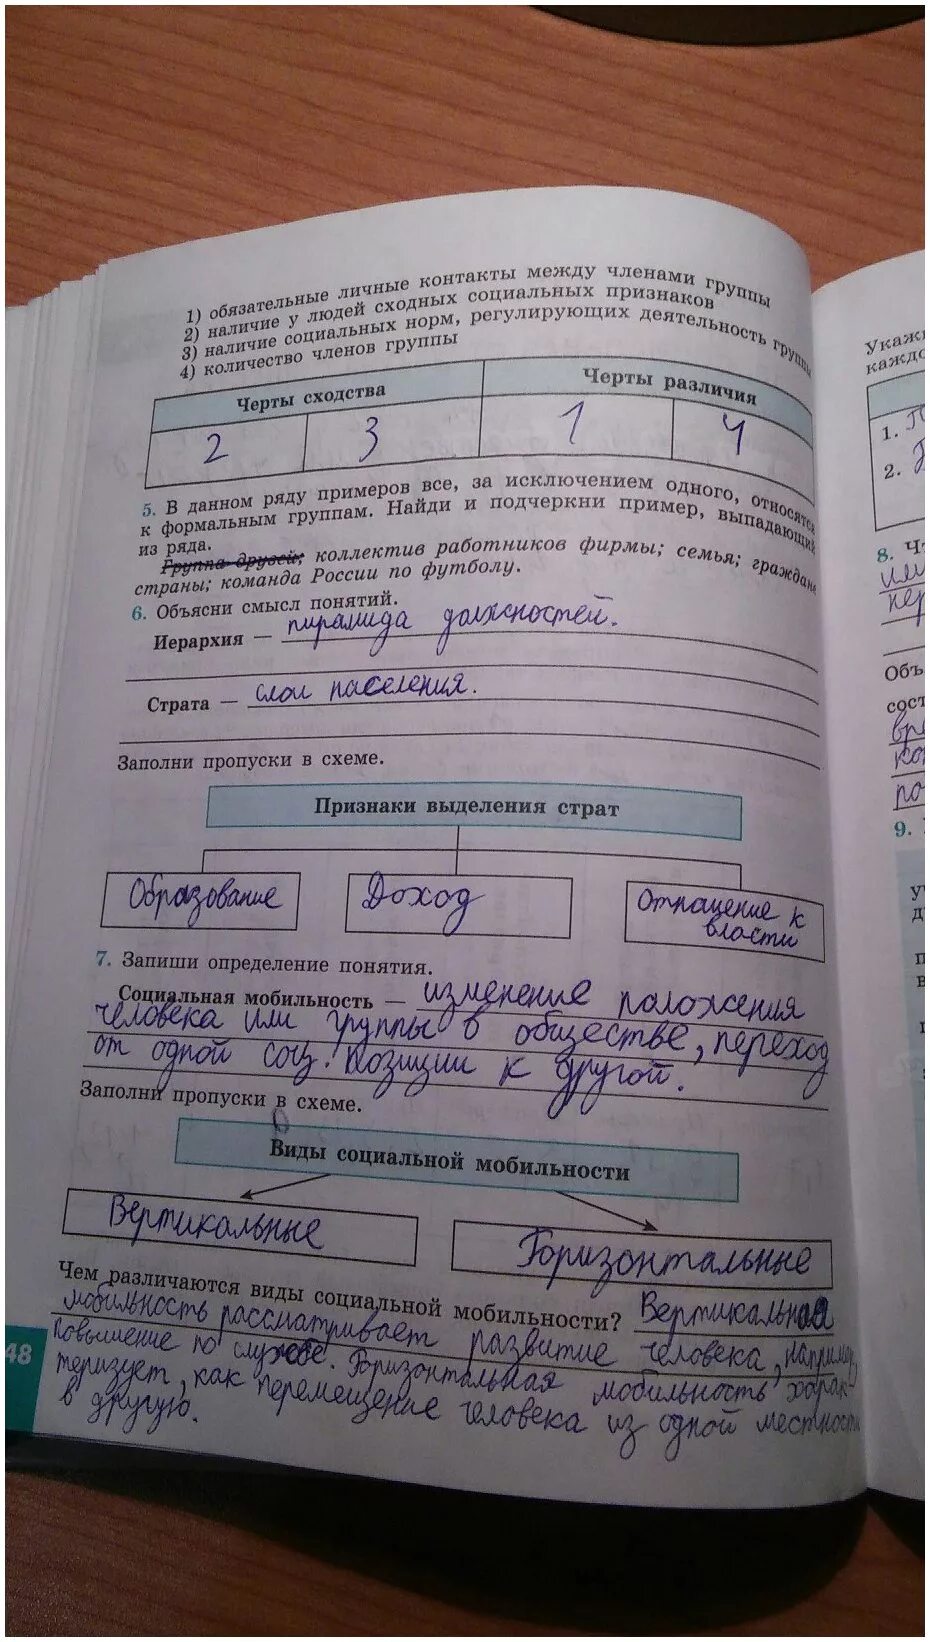 1) обязательные личные контакты между членами группы
2) наличие у людей сходных социальных признаков
3) наличие социальных норм, регулирующих деятельность группы
4) количество членов группы
Черты сходства Черты различия
2 3 1 4
5. В данном ряду примеров все, за исключением одного, относятся
к формальным группам. Найди и подчеркни пример, выпадающий
из ряда.
Группа друзей; коллектив работников фирмы; семья; граждане
страны; команда России по футболу.
6. Объясни смысл понятий.
Иерархия — пирамида должностей.
Страта — слои населения.
Заполни пропуски в схеме.
Признаки выделения страт
Образование Доход Отнащение к
власти
7. Запиши определение понятия.
Социальная мобильность — изменение положения
человека или группы в обществе, переход
от одной соц. позиции к другой.
Заполни пропуски в схеме.
Виды социальной мобильности
Вертикальные Горизонтальные
Чем различаются виды социальной мобильности? Вертикальная
мобильность рассматривает развитие человека, например,
повышение по службе. Горизонтальная мобильность харак-
теризует, как перемещение человека из одной местности
в другую.
48
Укажи
каждо
1.
2.
8. Чт
или
пер
Объ
сост
вре
ко
по
9.